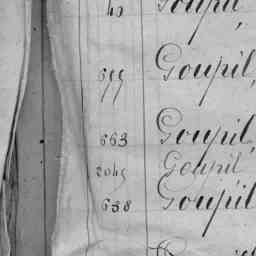 40 Goupil,
699 Goupil,
663 Goupil,
2045 Goupil
638 Goupil,